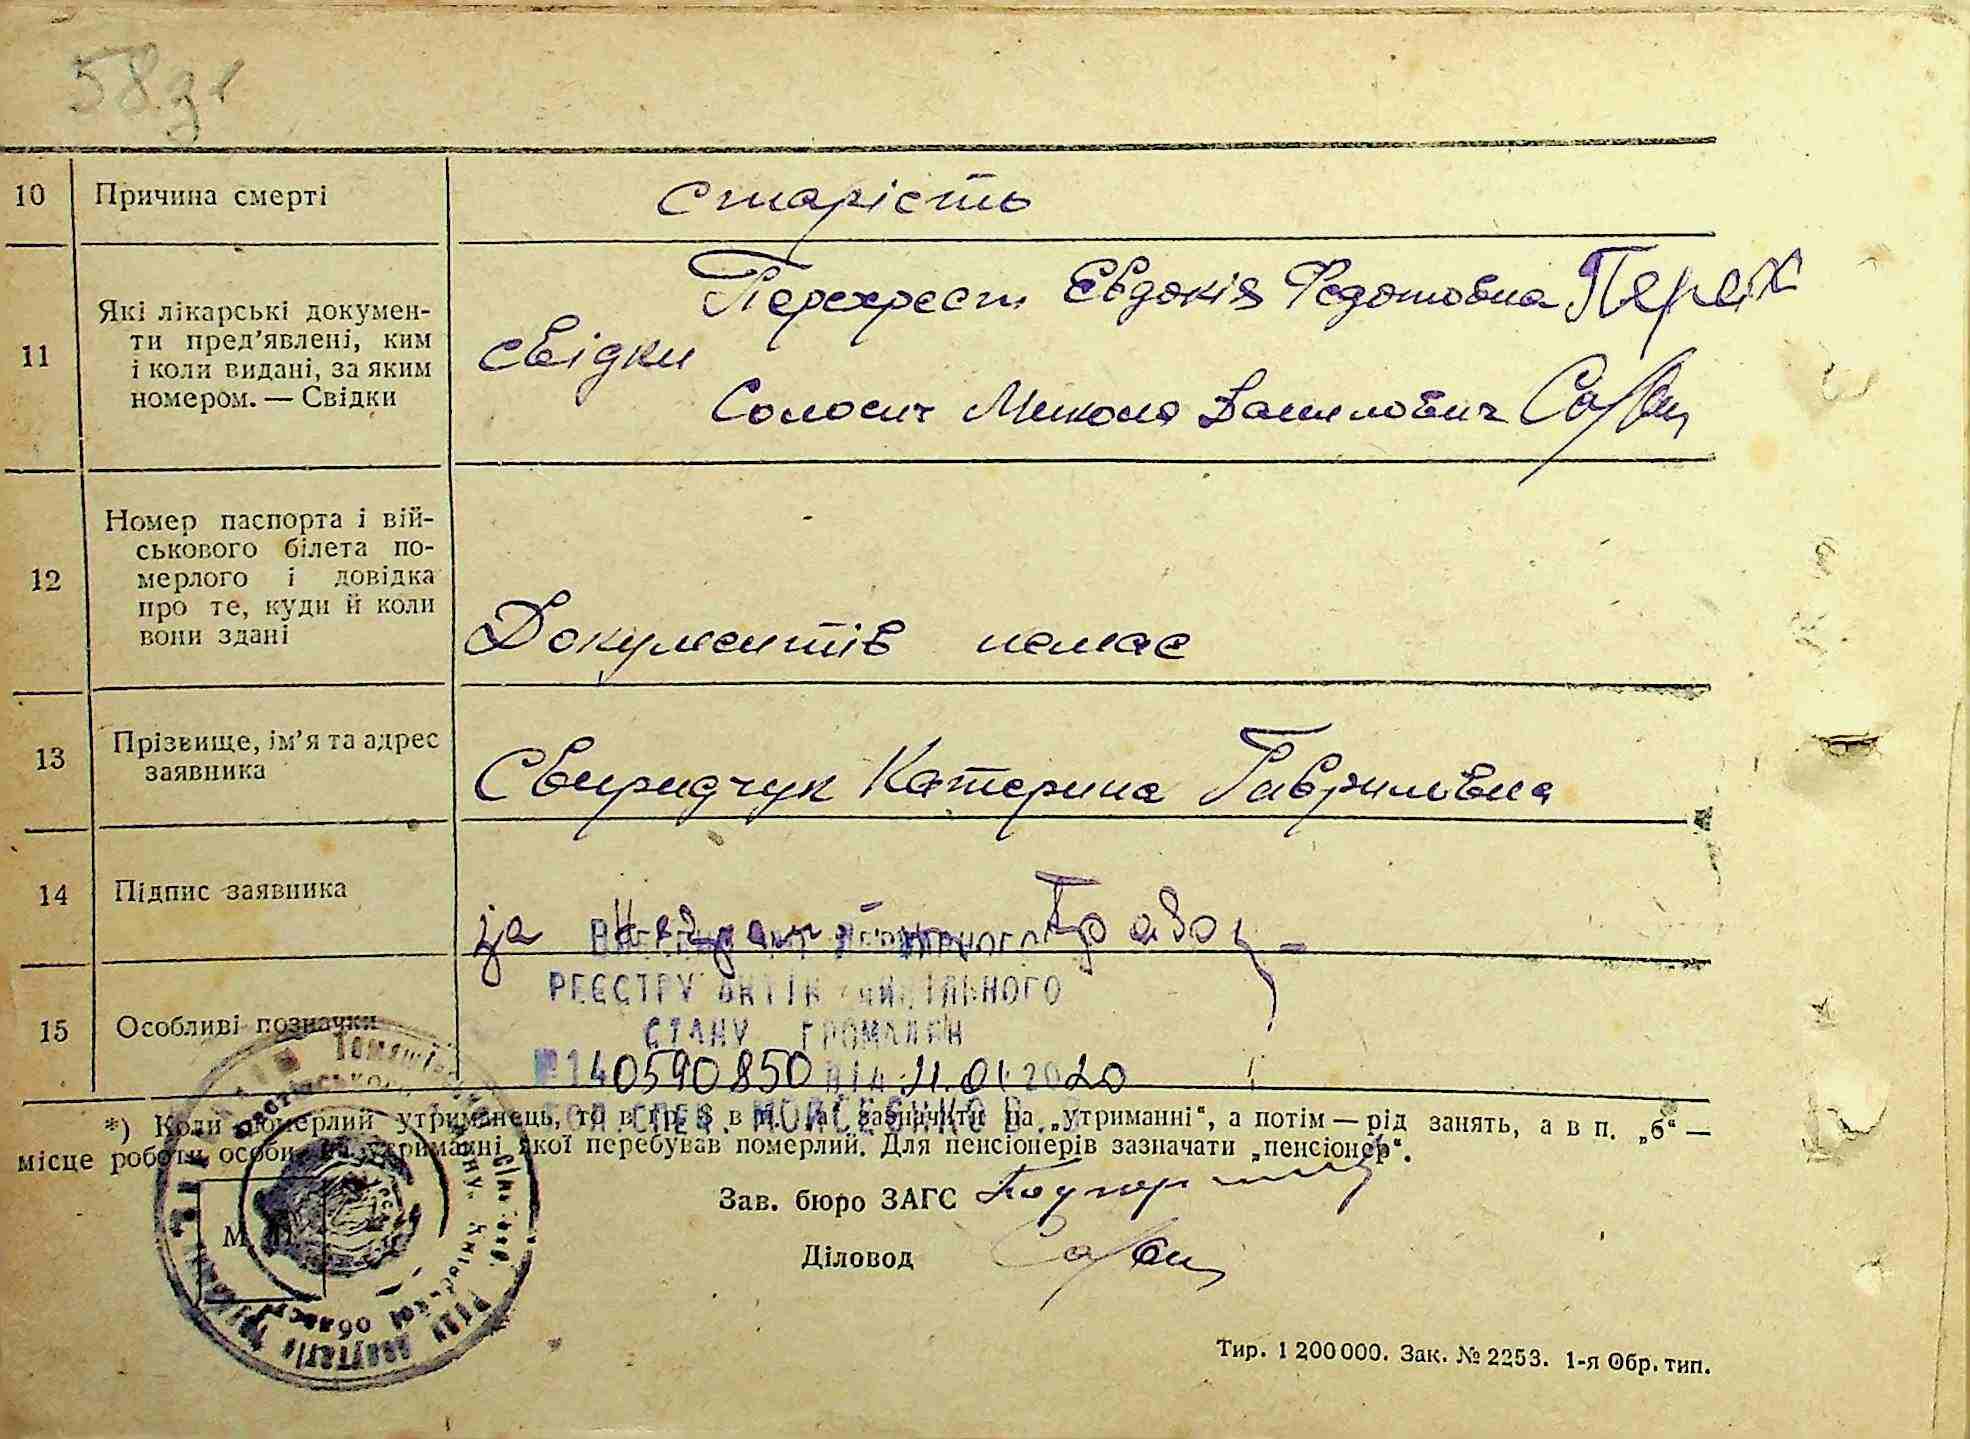 58 зв
10 Причина смерті старість
11 Які лікарські докумен-
ти пред'явлені, ким
і коли видані, за яким
номером. — Свідки
Перехрест Євдокія Федотовна Перех
свідки
Солосич Микола Данилович
12 Номер паспорта і вій-
ськового білета по-
мерлого і довідка
про те, куди й коли
вони здані
Документів немає
13 Прізвище, ім'я та адрес
заявника
Свиридчук Катерина Гаврилівна
14 Підпис заявника
за
15 Особливі позначки
ДЕРЖАВНОГО
РЕЄСТРУ АКТІВ ЦИВІЛЬНОГО
СТАНУ ГРОМАДЯН
№ 140590850 ВІД 21.01.2020
*) Коли померлий утриманець, то в гр. 8 в п. „а“ зазначити на „утриманні“, а потім — рід занять, а в п. „б“ —
місце роботи особи, на утриманні якої перебував померлий. Для пенсіонерів зазначати „пенсіонер“.
Зав. бюро ЗАГС
М. П.
Діловод
Тир. 1 200 000. Зак. № 2253. 1-я Обр. тип.